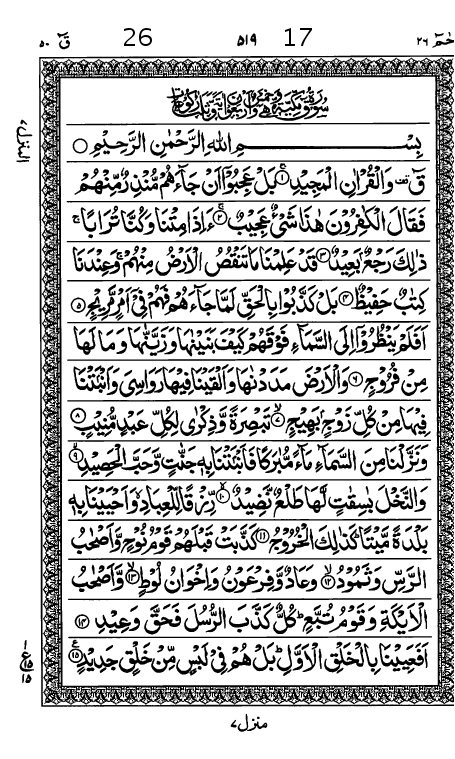 حٰمٓ ٢٦ ٥١٩ 17 26 قٓ ٥٠
سُوْرَةُ قٓ مَكِّيَّةٌ وَّهِيَ خَمْسٌ وَّاَرْبَعُوْنَ اٰيَةً وَّثَلٰثُ رُكُوْعَاتٍ
بِسْــــــمِ اللهِ الرَّحْمٰنِ الرَّحِيْمِ ○
قٓ ۚ وَالْقُرْاٰنِ الْمَجِيْدِ ۚ﴿١﴾ بَلْ عَجِبُوْٓا اَنْ جَآءَهُمْ مُّنْذِرٌ مِّنْهُمْ
فَقَالَ الْكٰفِرُوْنَ هٰذَا شَيْءٌ عَجِيْبٌ ۚ﴿٢﴾ ءَاِذَا مِتْنَا وَكُنَّا تُرَابًا ۚ
ذٰلِكَ رَجْعٌۢ بَعِيْدٌ ﴿٣﴾ قَدْ عَلِمْنَا مَا تَنْقُصُ الْاَرْضُ مِنْهُمْ ۚ وَعِنْدَنَا
كِتٰبٌ حَفِيْظٌ ﴿٤﴾ بَلْ كَذَّبُوْا بِالْحَقِّ لَمَّا جَآءَهُمْ فَهُمْ فِيْٓ اَمْرٍ مَّرِيْجٍ ﴿٥﴾
اَفَلَمْ يَنْظُرُوْٓا اِلَى السَّمَآءِ فَوْقَهُمْ كَيْفَ بَنَيْنٰهَا وَزَيَّنّٰهَا وَمَا لَهَا
مِنْ فُرُوْجٍ ﴿٦﴾ وَالْاَرْضَ مَدَدْنٰهَا وَاَلْقَيْنَا فِيْهَا رَوَاسِيَ وَاَنْۢبَتْنَا
فِيْهَا مِنْ كُلِّ زَوْجٍۢ بَهِيْجٍ ۙ﴿٧﴾ تَبْصِرَةً وَّذِكْرٰى لِكُلِّ عَبْدٍ مُّنِيْبٍ ﴿٨﴾
وَنَزَّلْنَا مِنَ السَّمَآءِ مَآءً مُّبٰرَكًا فَاَنْۢبَتْنَا بِهٖ جَنّٰتٍ وَّحَبَّ الْحَصِيْدِ ۙ﴿٩﴾
وَالنَّخْلَ بٰسِقٰتٍ لَّهَا طَلْعٌ نَّضِيْدٌ ۙ﴿١٠﴾ رِّزْقًا لِّلْعِبَادِ ۙ وَاَحْيَيْنَا بِهٖ
بَلْدَةً مَّيْتًا ؕ كَذٰلِكَ الْخُرُوْجُ ﴿١١﴾ كَذَّبَتْ قَبْلَهُمْ قَوْمُ نُوْحٍ وَّاَصْحٰبُ
الرَّسِّ وَثَمُوْدُ ۙ﴿١٢﴾ وَعَادٌ وَّفِرْعَوْنُ وَاِخْوَانُ لُوْطٍ ۙ﴿١٣﴾ وَّاَصْحٰبُ
الْاَيْكَةِ وَقَوْمُ تُبَّعٍ ؕ كُلٌّ كَذَّبَ الرُّسُلَ فَحَقَّ وَعِيْدِ ﴿١٤﴾
اَفَعَيِيْنَا بِالْخَلْقِ الْاَوَّلِ ؕ بَلْ هُمْ فِيْ لَبْسٍ مِّنْ خَلْقٍ جَدِيْدٍ ۠﴿١٥﴾
المنزل ٧
١
ع
١٥
١٥
منزل ٧